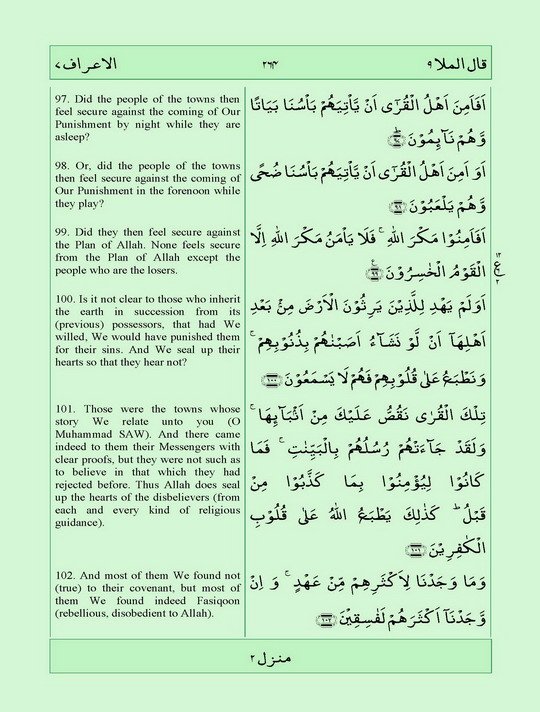 قال الملا ۹ ۲۶۴ الاعراف ۷
97. Did the people of the towns then
feel secure against the coming of Our
Punishment by night while they are
asleep?
98. Or, did the people of the towns
then feel secure against the coming of
Our Punishment in the forenoon while
they play?
99. Did they then feel secure against
the Plan of Allah. None feels secure
from the Plan of Allah except the
people who are the losers.
100. Is it not clear to those who inherit
the earth in succession from its
(previous) possessors, that had We
willed, We would have punished them
for their sins. And We seal up their
hearts so that they hear not?
101. Those were the towns whose
story We relate unto you (O
Muhammad SAW). And there came
indeed to them their Messengers with
clear proofs, but they were not such as
to believe in that which they had
rejected before. Thus Allah does seal
up the hearts of the disbelievers (from
each and every kind of religious
guidance).
102. And most of them We found not
(true) to their covenant, but most of
them We found indeed Fasiqoon
(rebellious, disobedient to Allah).
اَفَاَمِنَ اَهْلُ الْقُرٰٓى اَنْ يَّاْتِيَهُمْ بَاْسُنَا بَيَاتًا
وَّهُمْ نَآئِمُوْنَ ؕ ۹۷
اَوَ اَمِنَ اَهْلُ الْقُرٰٓى اَنْ يَّاْتِيَهُمْ بَاْسُنَا ضُحًى
وَّهُمْ يَلْعَبُوْنَ ۹۸
اَفَاَمِنُوْا مَكْرَ اللّٰهِ ۚ فَلَا يَاْمَنُ مَكْرَ اللّٰهِ اِلَّا
الْقَوْمُ الْخٰسِرُوْنَ ۹۹
اَوَلَمْ يَهْدِ لِلَّذِيْنَ يَرِثُوْنَ الْاَرْضَ مِنْۢ بَعْدِ
اَهْلِهَاۤ اَنْ لَّوْ نَشَآءُ اَصَبْنٰهُمْ بِذُنُوْبِهِمْ ۚ
وَنَطْبَعُ عَلٰى قُلُوْبِهِمْ فَهُمْ لَا يَسْمَعُوْنَ ۱۰۰
تِلْكَ الْقُرٰى نَقُصُّ عَلَيْكَ مِنْ اَنْۢبَآئِهَا ۚ
وَلَقَدْ جَآءَتْهُمْ رُسُلُهُمْ بِالْبَيِّنٰتِ ۚ فَمَا
كَانُوْا لِيُؤْمِنُوْا بِمَا كَذَّبُوْا مِنْ
قَبْلُ ؕ كَذٰلِكَ يَطْبَعُ اللّٰهُ عَلٰى قُلُوْبِ
الْكٰفِرِيْنَ ۱۰۱
وَمَا وَجَدْنَا لِاَكْثَرِهِمْ مِّنْ عَهْدٍ ۚ وَ اِنْ
وَّجَدْنَاۤ اَكْثَرَهُمْ لَفٰسِقِيْنَ ۱۰۲
۱۲
ع
۲
منزل ۲